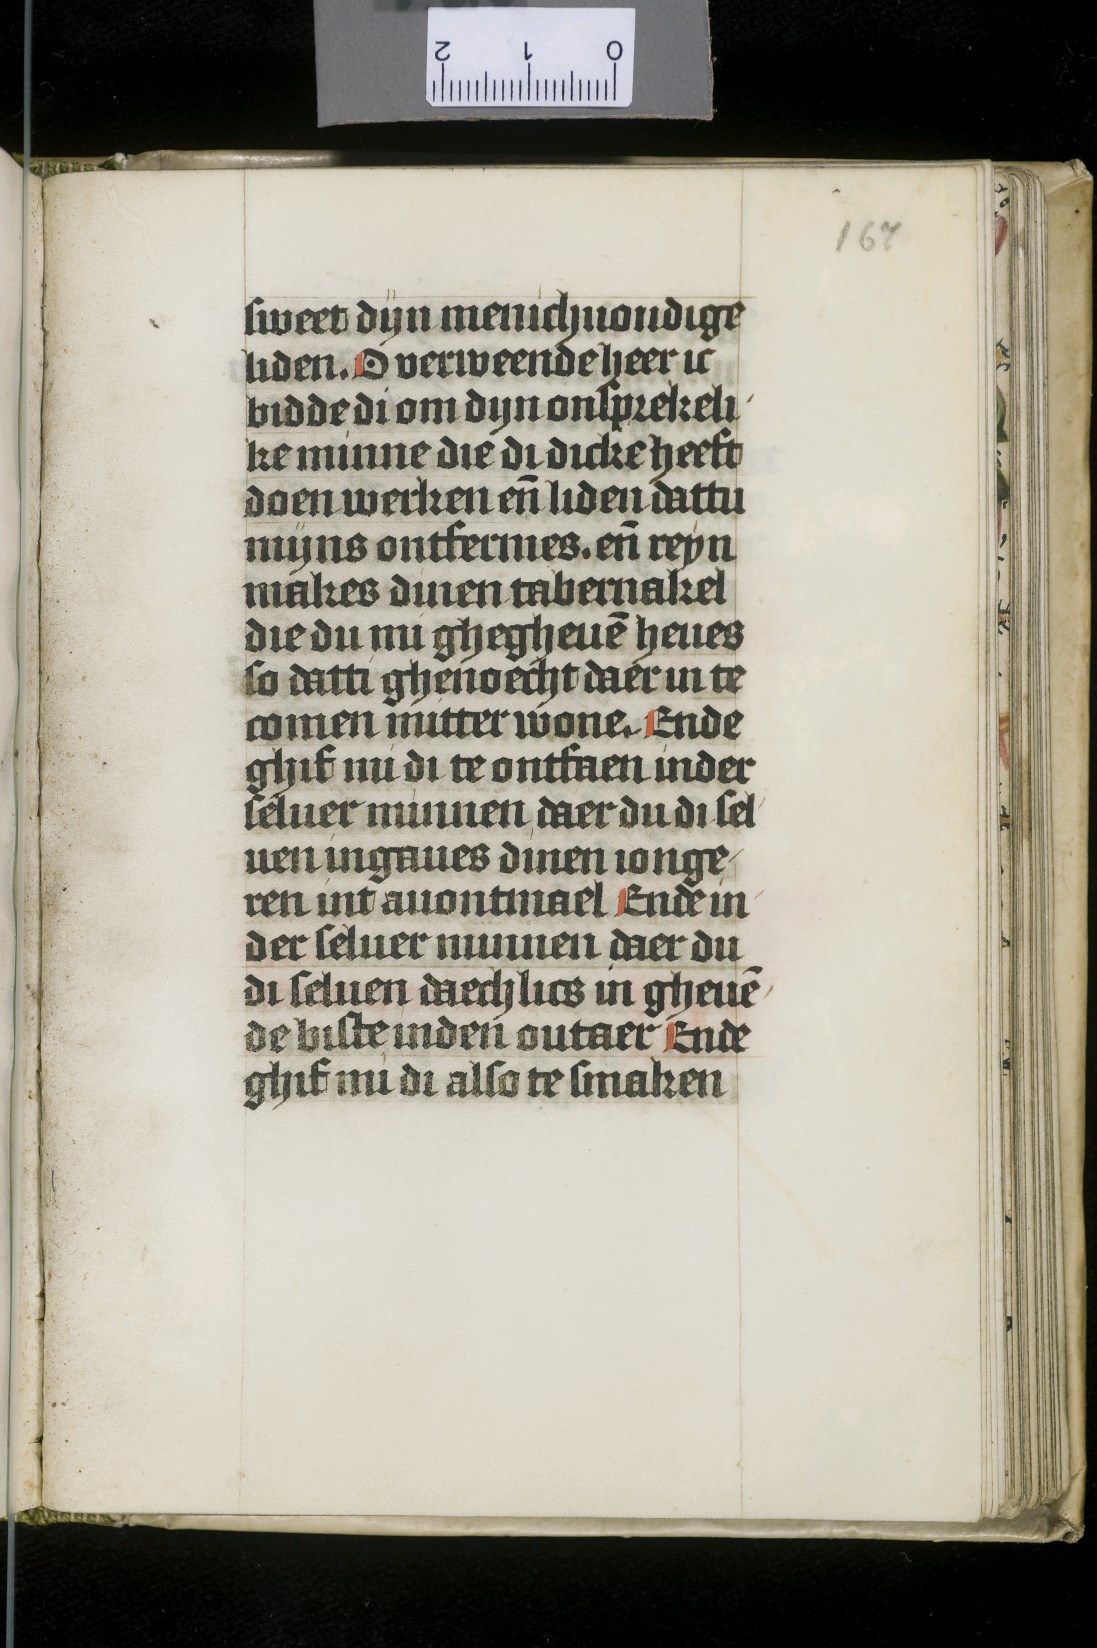 2 1 0
167
sweet dijn menichuoudige
liden. O verweende heer ic
bidde di om dijn onsprekeli
ke minne die di dicke heeft
doen werken en̄ liden dattu
mijns ontfermes. en̄ reyn
makes dinen tabernakel
die du mi ghegheuē heues
so datti ghenoecht daer in te
comen mitter wone. Ende
ghif mi di te ontfaen inder
seluer minnen daer du di sel
uen in gaues dinen ionge
ren int auontmael Ende in
der seluer minnen daer du
di seluen daechlics in gheuē
de biste inden outaer Ende
ghif mi di also te smaken